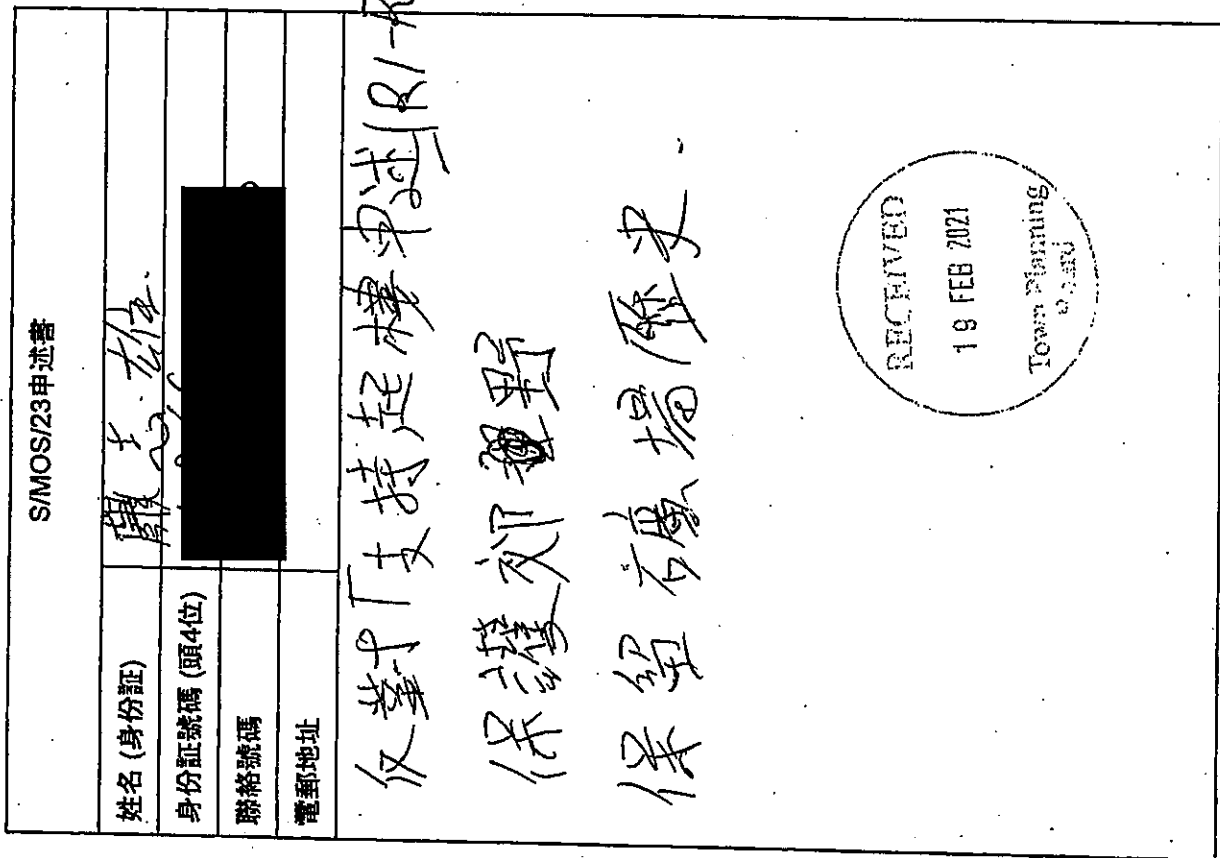 S/MOS/23申述書
姓名 (身份証) 志雄.
身份証號碼 (頭4位)
聯絡號碼
電郵地址
反對「支持起樓申述」R1-R
保護郊野
保留礦場歷史.
RECEIVED
19 FEB 2021
Town Planning
Board